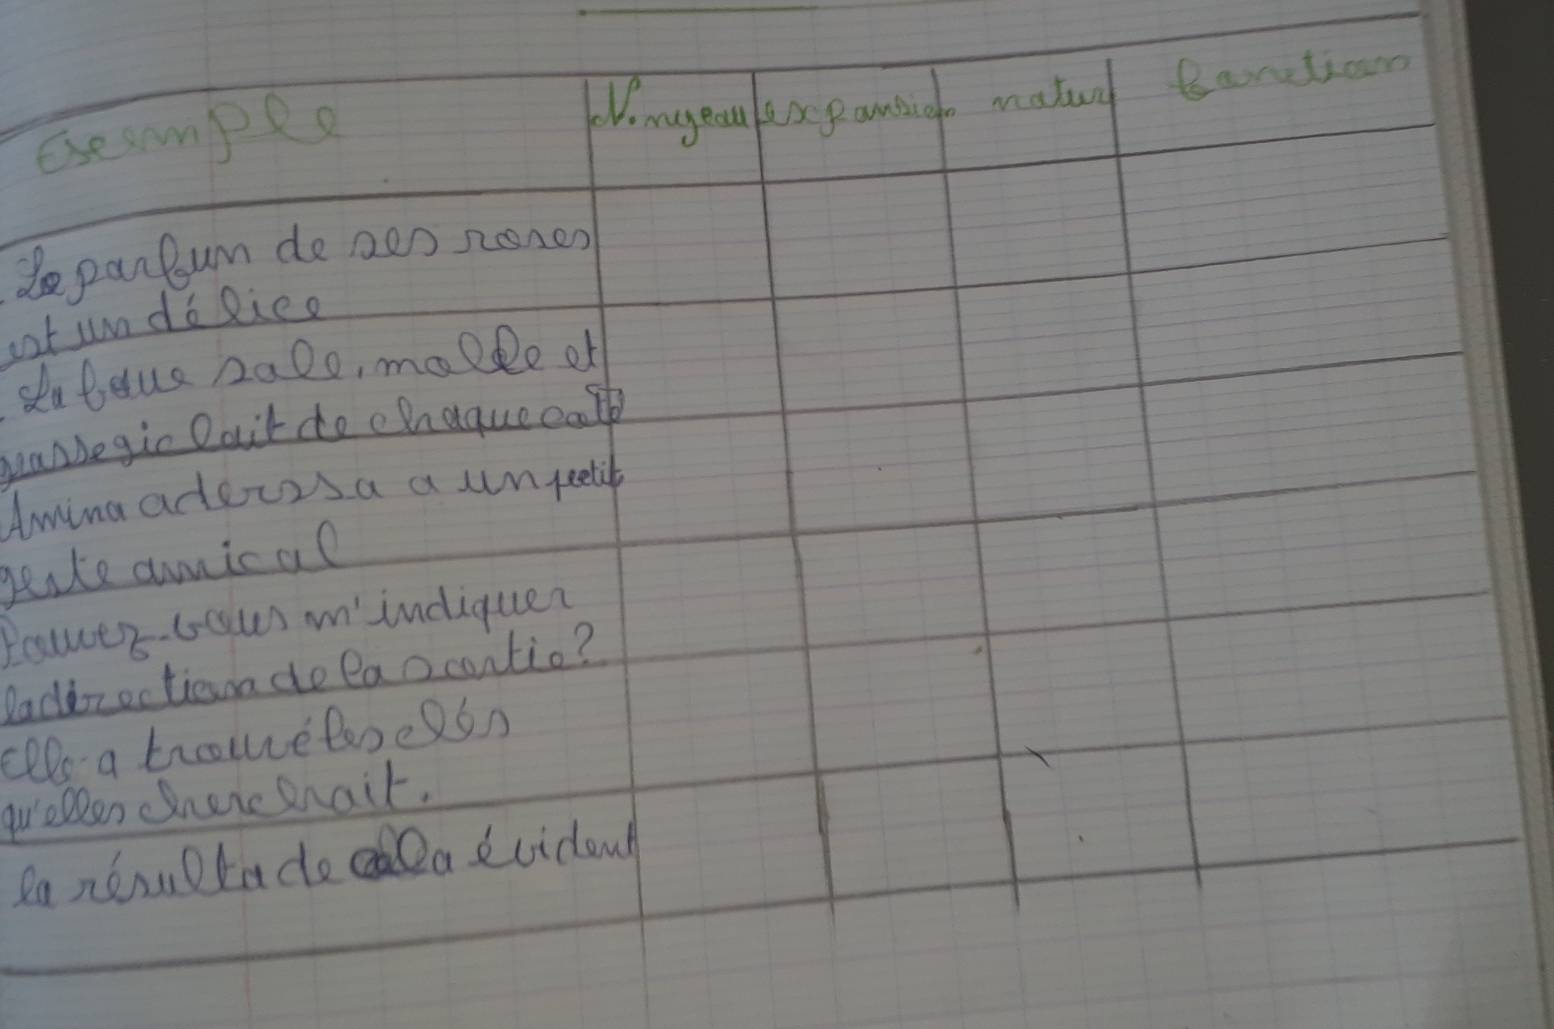 Exemple N.noyeau expansion natur fonction
Le parfum de ses roses
est un délice
La boue sale, molle et
grasse giclait de chaque coté
Amina aderssa a un petit
geste amical
Pouvez-vous m'indiquer
la direction de la sortie?
Elle a trouvé les clés
qu'elles cherchait.
la résulta de cela évident